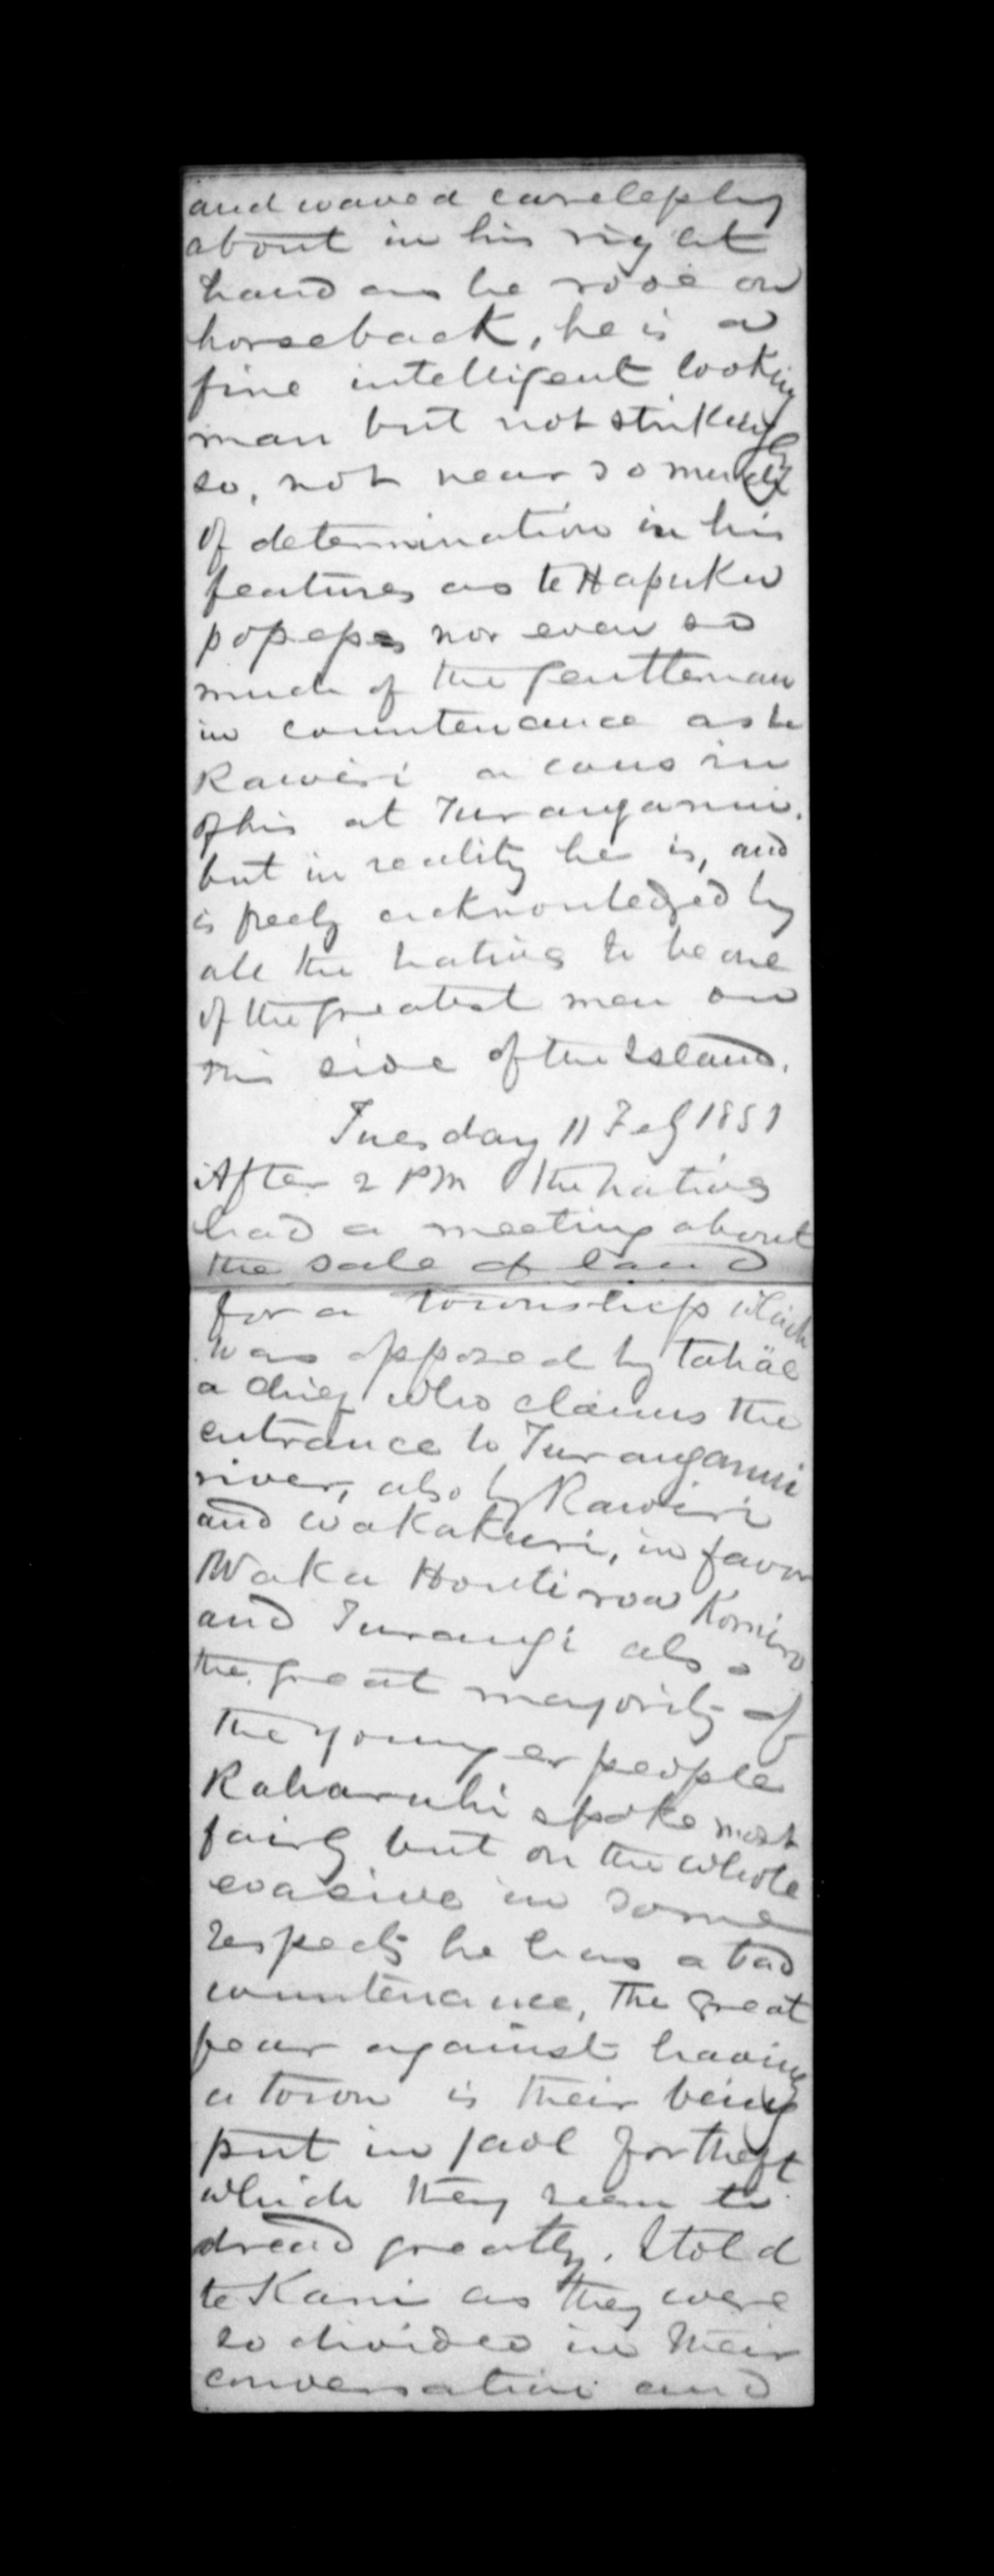 and waved carelessly
about in his right
hand as he rode on
horseback, he is a
fine intelligent looking
man but not strikingly
so, not near so much
of determination in his
features as te Hapuku
possesses nor even so
much of the gentleman
in countenance as te
Rawiri a cousin
of his at Turanganui.
but in reality he is, and
is freely acknowledged by
all the natives to be one
of the greatest men on
this side of the Island.
Tuesday 11 Feb 1851
After 2 PM the natives
had a meeting about
the sale of land
for a township which
was opposed by tahae
a chief who claims the
entrance to Turanganui
river, also by Rawiri
and Wakakuri, in favor
Waka Houtiroa
and Turangi also
the great majority of
the younger people
Raharuhi spoke most
fairly but on the whole
evasive in some
respects he has a bad
countenance, The great
fear against having
a town is their being
put in jaol for theft
which they seem to
dread greatly. I told
te Kani as they were
so divided in their
conversation and